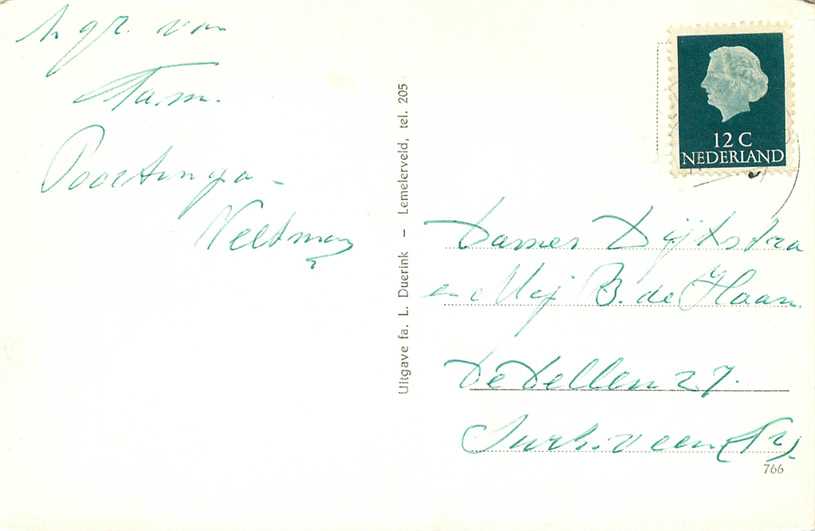 h. gr. van
Fam.
Poortinga -
Veltman
Uitgave fa. L. Duerink – Lemelerveld, tel. 205
12 C
NEDERLAND
Dames Dijkstra
en Mej B. de Haan
De Dellen 27.
Surh.veen (Fr).
766